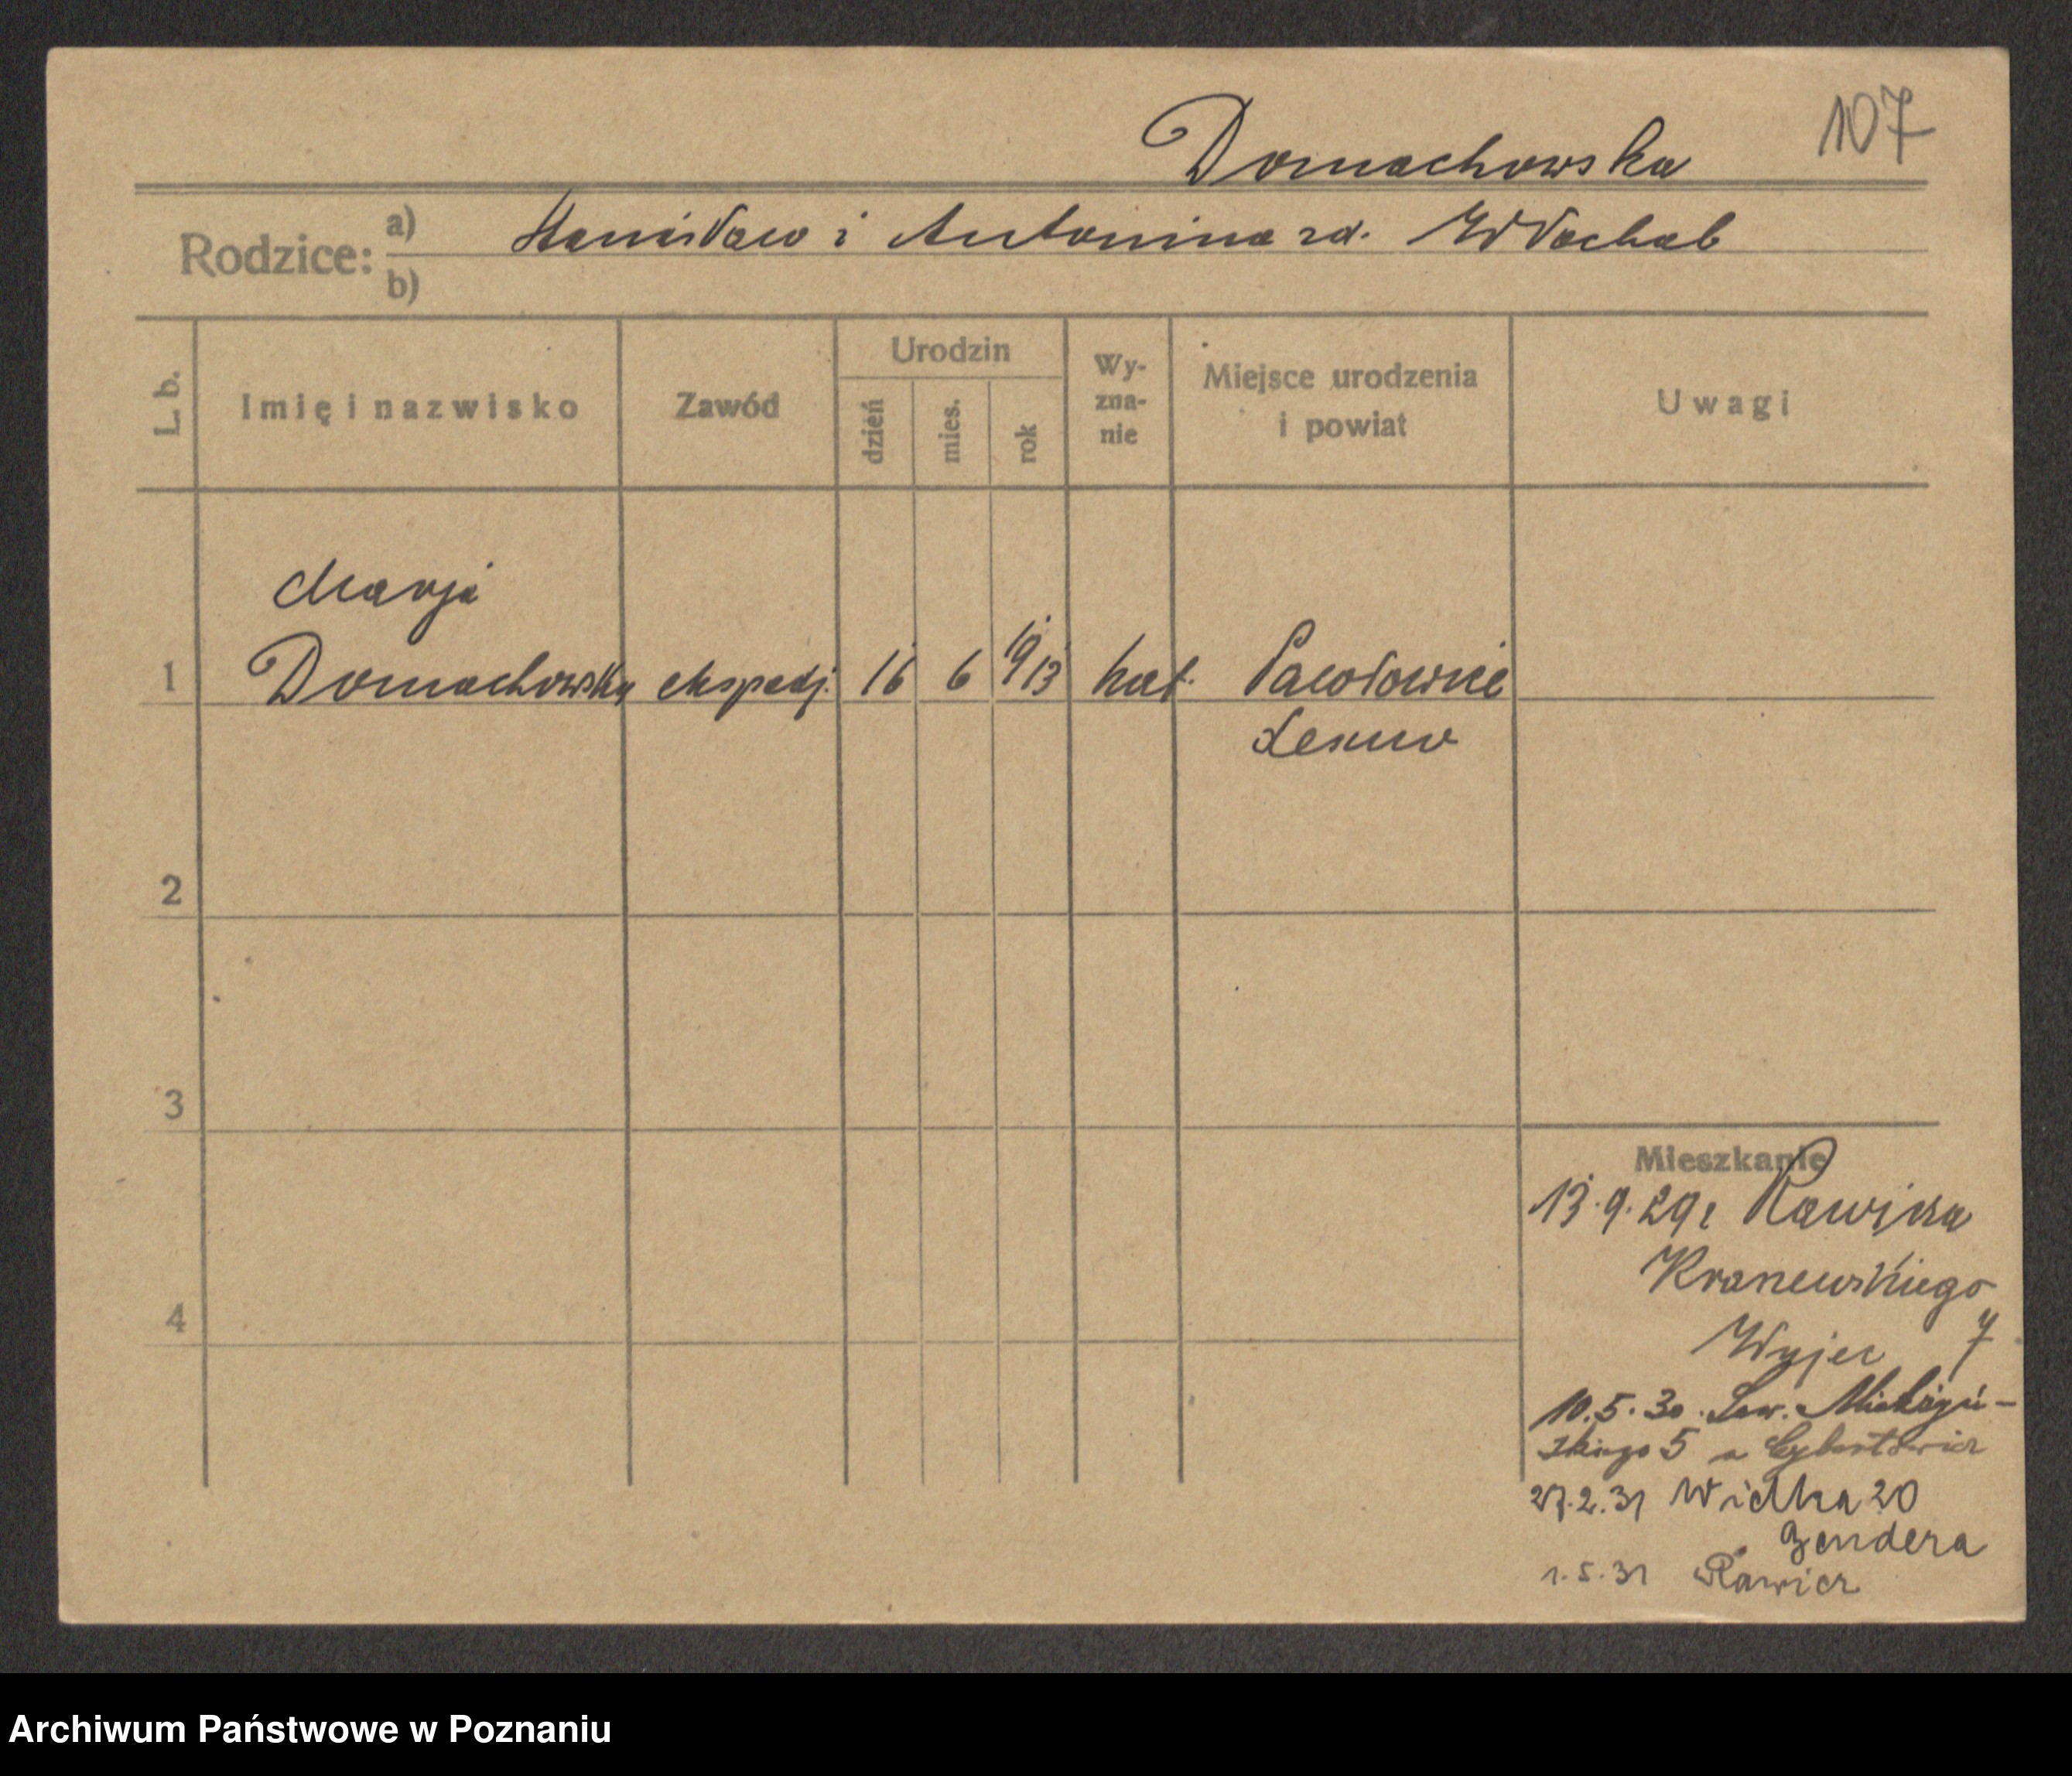 107
Domachowska
Rodzice: a) Stanisław i Antonina rd. Włochab
b)
L. b. Imię i nazwisko Zawód Urodzin dzień mies. rok Wy-zna-nie Miejsce urodzenia i powiat Uwagi
Marja
1 Domachowska ekspedj. 16 6 1913 kat. Pawłowice
Leszno
2
3
Mieszkanie
13.9.29 z Rawicza
4
Wyjec 7
10.5.30.
5
27.2.31 Wielka 20
Zendera
1.5.31 Rawicz
Archiwum Państwowe w Poznaniu